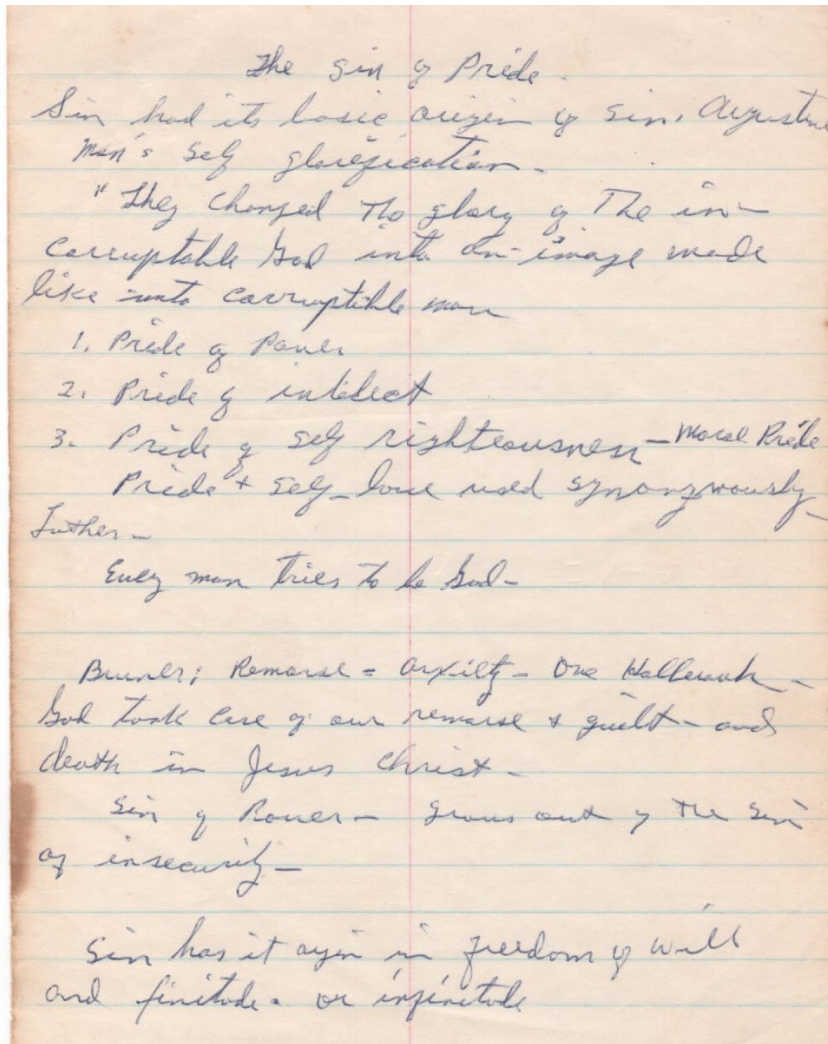 The Sin of Pride.
Sin had its basic origin of sin, Augustine
Man's self glorification -
"They changed the glory of The in-
corruptable God into an image made
like unto corruptible man
1. Pride of Power
2. Pride of intelect
3. Pride of self righteousness - Worse Pride
Pride + self-love used synonymously -
Luther -
Every man tries to be God -
Bruner; Remorse = anxiety - One
God took care of our remorse & guilt - and
death in Jesus Christ -
Sin of Power - grows out of the sin
of insecurity -
Sin has it in freedom of will
and finitude - or infinitude